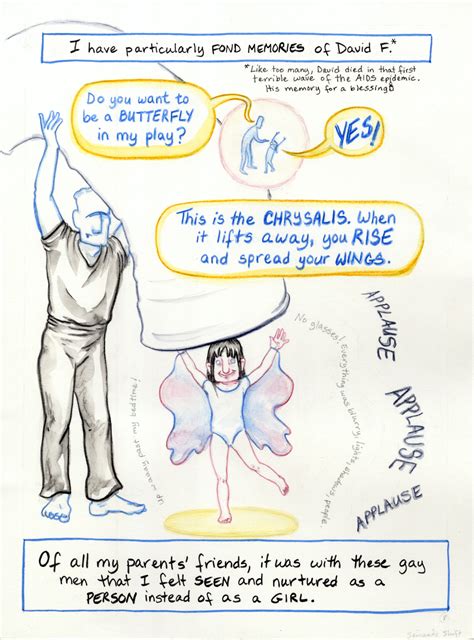 I have particularly FOND MEMORIES of David F.*
*Like too many, David died in that first
terrible wave of the AIDS epidemic.
His memory for a blessing.
Do you want to
be a BUTTERFLY
in my play?
YES!
This is the CHRYSALIS. When
it lifts away, you RISE
and spread your WINGS.
up waaay past my bedtime!
No glasses! Everything was blurry, lights, shadows, people.
APPLAUSE
APPLAUSE
APPLAUSE
Of all my parents' friends, it was with these gay
men that I felt SEEN and nurtured as a
PERSON instead of as a GIRL.